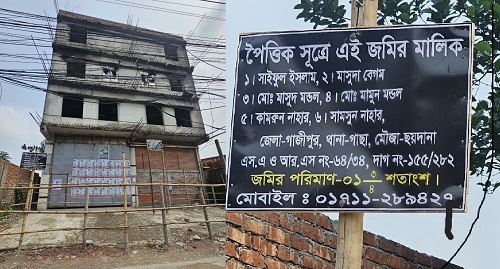 পৈত্তিক সূত্রে এই জমির মালিক
১। সাইফুল ইসলাম, ২। মাসুদা বেগম
৩। মোঃ মাসুদ মন্ডল, ৪। মোঃ মামুন মন্ডল
৫। কামরুন নাহার, ৬। সামসুন নাহার,
জেলা-গাজীপুর, থানা-গাছা, মৌজা-ছয়দানা
এস.এ ও আর.এস নং-৬৪/৩৪, দাগ নং-১৫৫/২৮২
জমির পরিমাণ-০১ ৩/৪ শতাংশ।
মোবাইল : ০১৭১১-২৮৯৪২৭